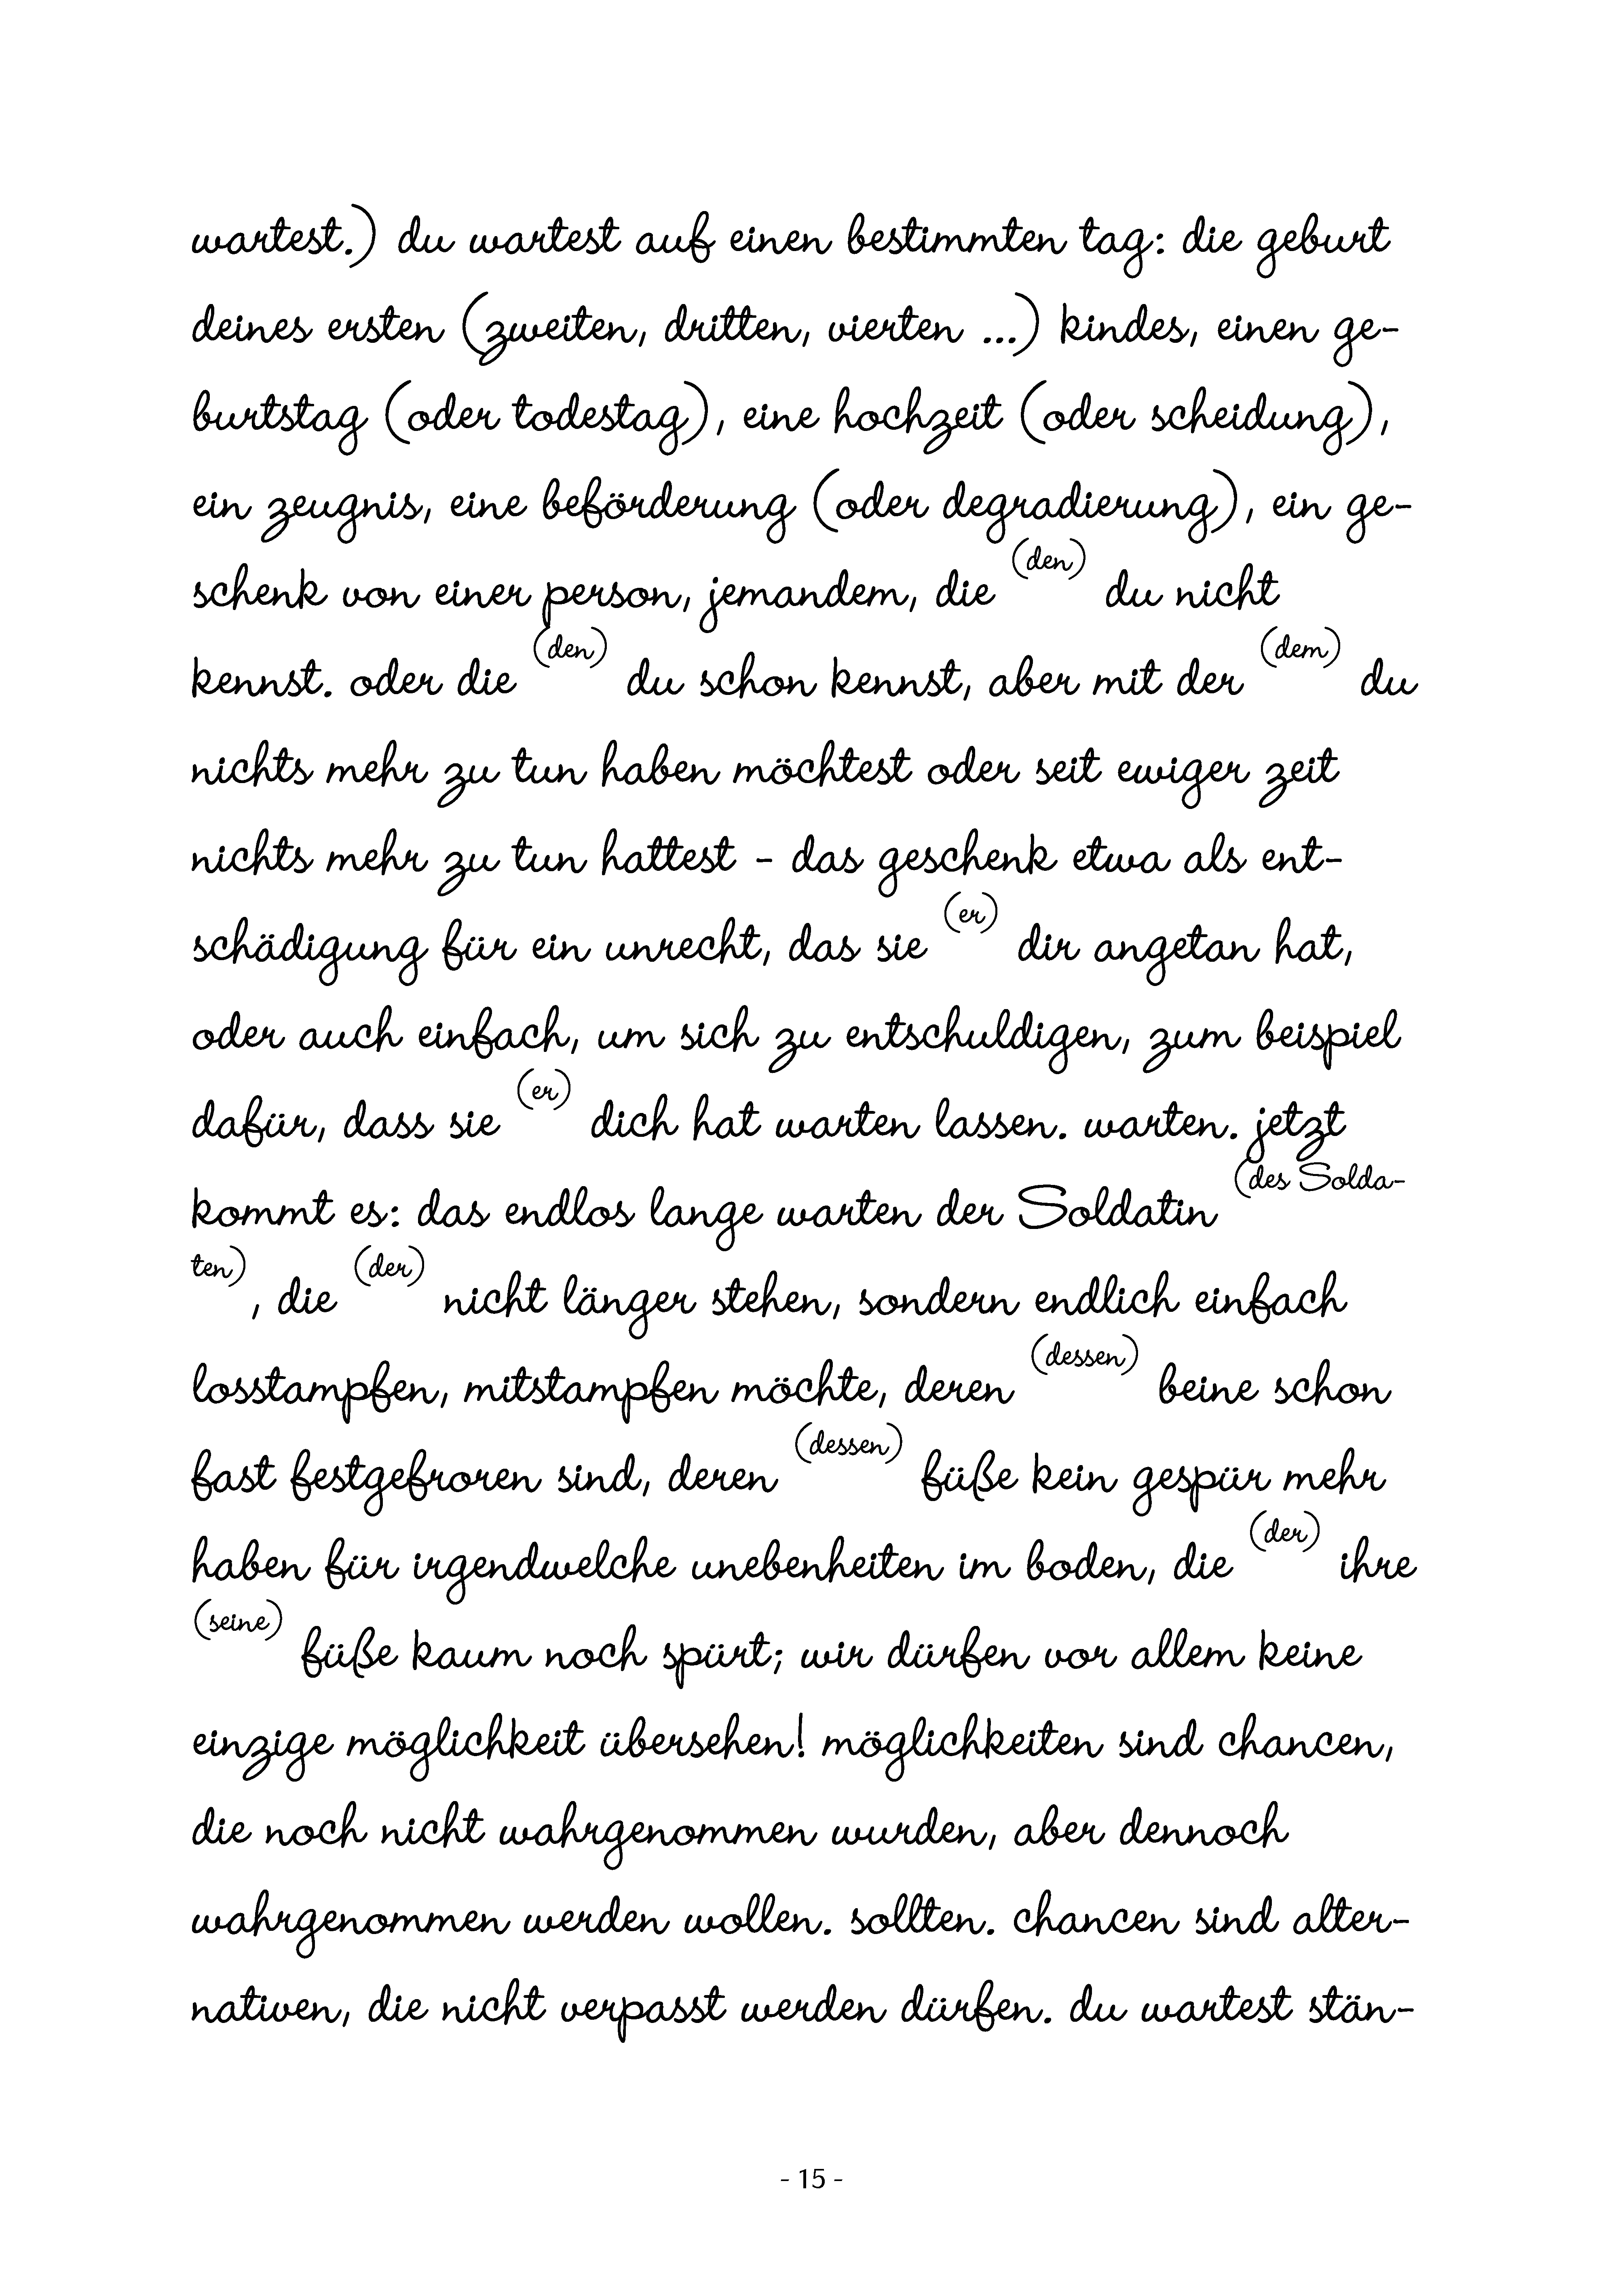 wartest.) du wartest auf einen bestimmten tag: die geburt
deines ersten (zweiten, dritten, vierten ...) kindes, einen ge-
burtstag (oder todestag), eine hochzeit (oder scheidung),
ein zeugnis, eine beförderung (oder degradierung), ein ge-
schenk von einer person, jemandem, die (den) du nicht
kennst. oder die (den) du schon kennst, aber mit der (dem) du
nichts mehr zu tun haben möchtest oder seit ewiger zeit
nichts mehr zu tun hattest - das geschenk etwa als ent-
schädigung für ein unrecht, das sie (er) dir angetan hat,
oder auch einfach, um sich zu entschuldigen, zum beispiel
dafür, dass sie (er) dich hat warten lassen. warten. jetzt
kommt es: das endlos lange warten der Soldatin (des Solda-
ten), die (der) nicht länger stehen, sondern endlich einfach
losstampfen, mitstampfen möchte, deren (dessen) beine schon
fast festgefroren sind, deren (dessen) füße kein gespür mehr
haben für irgendwelche unebenheiten im boden, die (der) ihre
(seine) füße kaum noch spürt; wir dürfen vor allem keine
einzige möglichkeit übersehen! möglichkeiten sind chancen,
die noch nicht wahrgenommen wurden, aber dennoch
wahrgenommen werden wollen. sollten. chancen sind alter-
nativen, die nicht verpasst werden dürfen. du wartest stän-
- 15 -